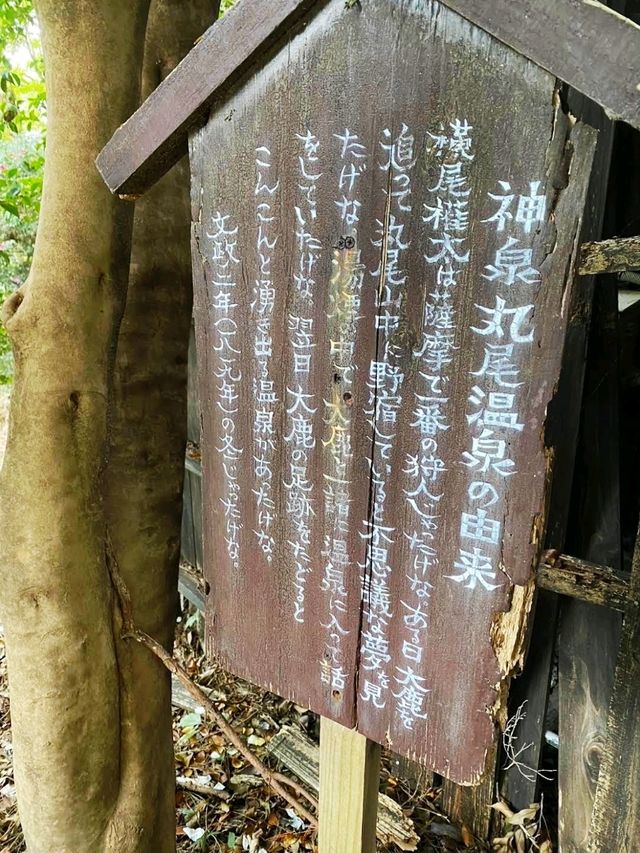 神泉 丸尾温泉の由来
横尾権太は薩摩で一番の狩人じゃったげな。ある日大鹿を
追って丸尾山中に野宿していると不思議な夢を見
たげな。湯煙の中で大鹿と一諸に温泉に入って話
をしていたげな。翌日 大鹿の足跡をたどると
こんこんと湧き出る温泉があったげな。
文政二年(一八一九年)の冬じゃったげな。